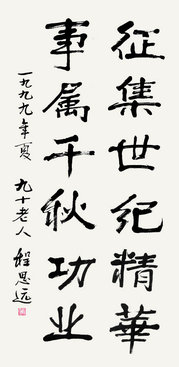 征集世纪精華
事属千秋功业
一九九九年夏
九十老人 程思远